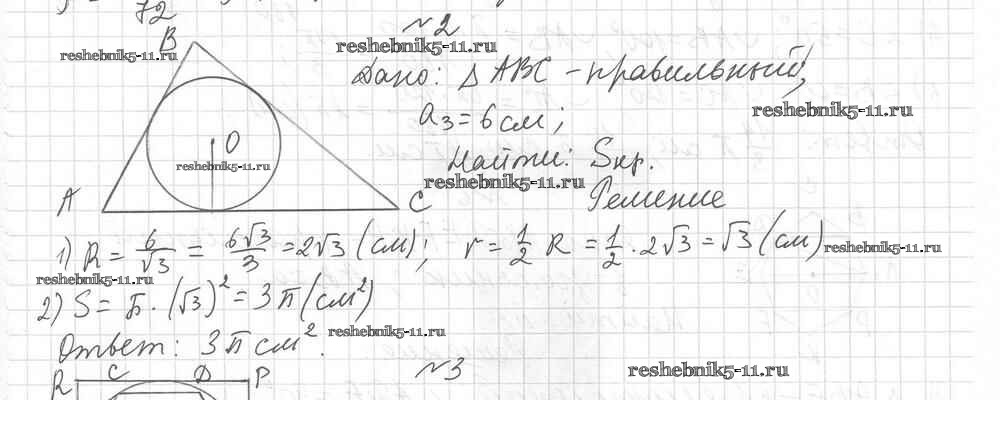 72
№2
reshebnik5-11.ru
B
reshebnik5-11.ru
Дано: △ ABC – правильный,
reshebnik5-11.ru
a₃ = 6 см;
O
reshebnik5-11.ru
Найти: Sкр.
reshebnik5-11.ru
A
C
Решение
1) R = 6/√3 = 6√3/3 = 2√3 (см); r = 1/2 R = 1/2 · 2√3 = √3 (см)
reshebnik5-11.ru
reshebnik5-11.ru
2) S = π · (√3)² = 3π (см²)
reshebnik5-11.ru
Ответ: 3π см².
№3
reshebnik5-11.ru
R C D P